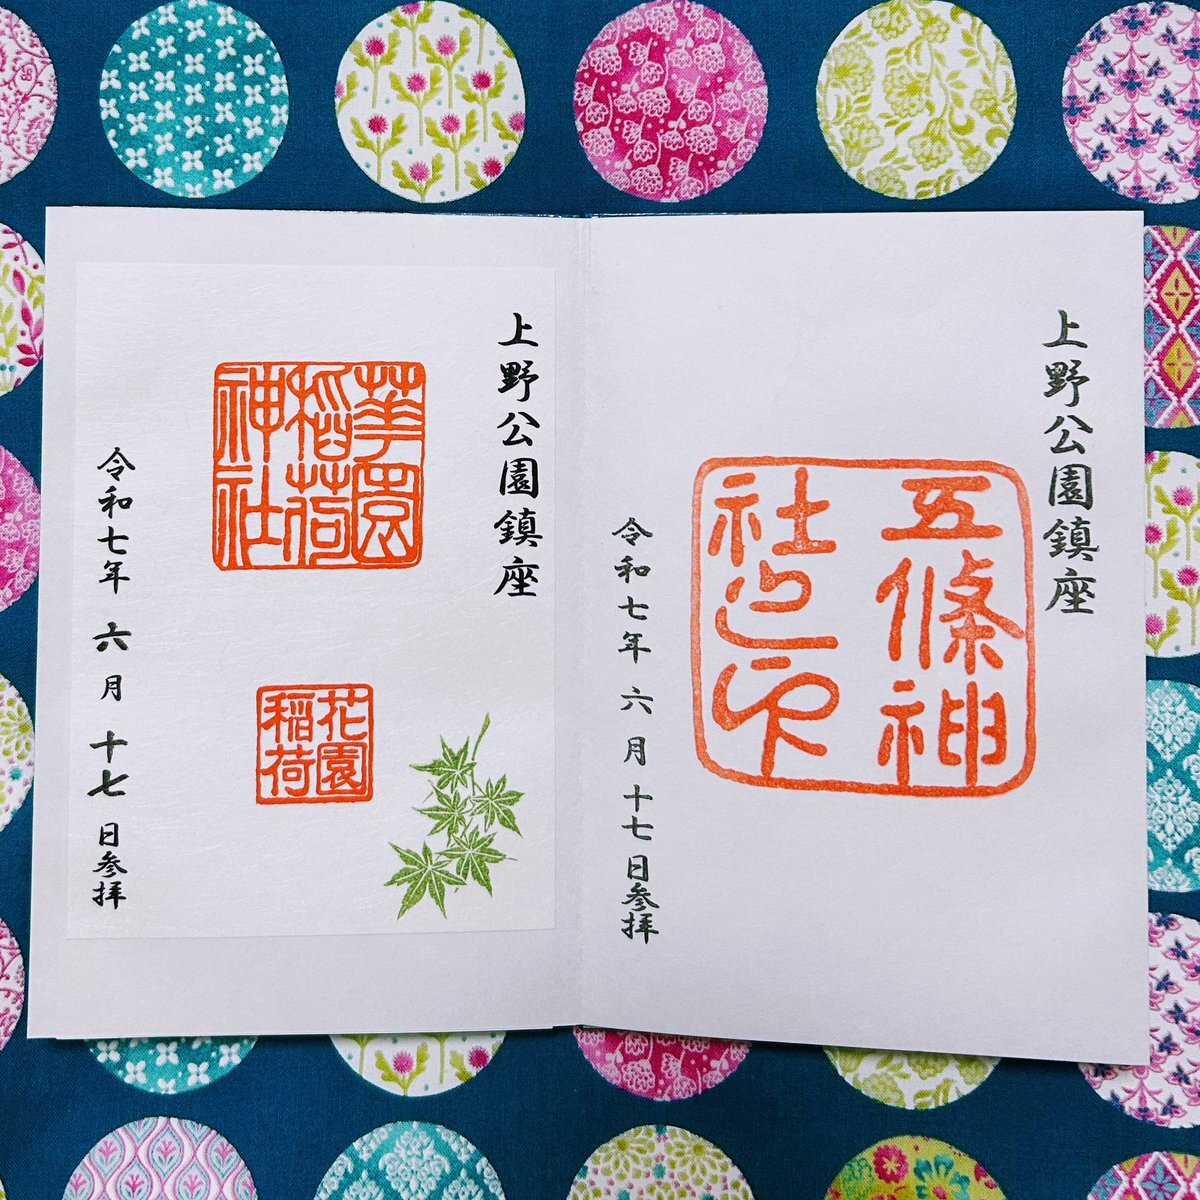 上野公園鎮座
五條神
社之印
令和七年 六月 十七日参拝
上野公園鎮座
華園
稲荷
神社
花園
稲荷
令和七年 六月 十七日参拝